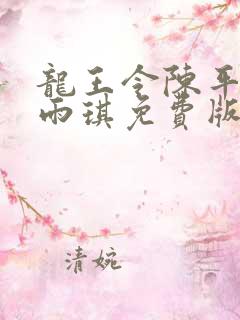 龍王令陳平
雨琪免費版
清婉